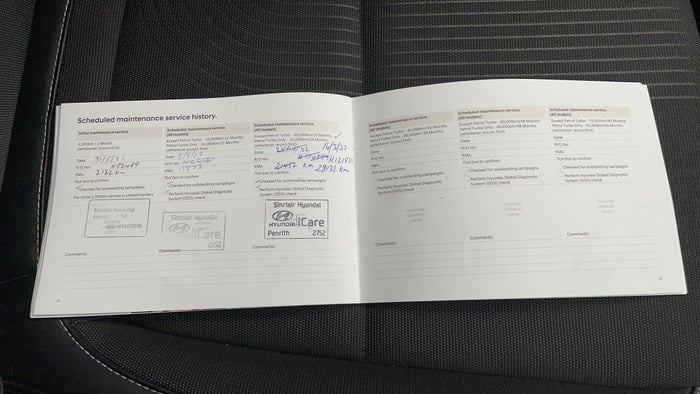 Scheduled maintenance service history.
Initial maintenance service.
1,500km / 1 Month
(whichever occurs first)
Date: 31/5/21
R/O No:
KMs: 2132 KM
Tick box to confirm:
✓Checked for outstanding campaigns
The initial 1,500km service is complimentary
Sinclair Hyundai
Penrith
HYUNDAI
Comments:
Scheduled maintenance service.
(All models)
Except Petrol Turbo - 15,000km/12 Months
Petrol Turbo Only - 10,000km/12 Months
(whichever occurs first)
Date:
R/O No:
KMs:
Tick box to confirm:
Checked for outstanding campaigns
Perform Hyundai Global Diagnostic
System (GDS) check
Sinclair Hyundai
HYUNDAI iCare
2752
Comments:
Scheduled maintenance service.
(All models)
Except Petrol Turbo - 30,000km/24 Months
Petrol Turbo Only - 20,000km/24 Months
(whichever occurs first)
Date: 16/3/23
R/O No:
KMs: 28132 KM
Tick box to confirm:
Checked for outstanding campaigns
Perform Hyundai Global Diagnostic
System (GDS) check
Sinclair Hyundai
HYUNDAI iCare
Penrith 2752
Comments:
Scheduled maintenance service.
(All models)
Except Petrol Turbo - 45,000km/36 Months
Petrol Turbo Only - 30,000km/36 Months
(whichever occurs first)
Date:
R/O No:
KMs:
Tick box to confirm:
Checked for outstanding campaigns
Perform Hyundai Global Diagnostic
System (GDS) check
Servicing
validation
stamp
Comments:
Scheduled maintenance service.
(All models)
Except Petrol Turbo - 60,000km/48 Months
Petrol Turbo Only - 40,000km/48 Months
(whichever occurs first)
Date:
R/O No:
KMs:
Tick box to confirm:
Checked for outstanding campaigns
Perform Hyundai Global Diagnostic
System (GDS) check
Servicing
validation
stamp
Comments:
Scheduled maintenance service.
(All models)
Except Petrol Turbo - 75,000km/60 Months
Petrol Turbo Only - 50,000km/60 Months
(whichever occurs first)
Date:
R/O No:
KMs:
Tick box to confirm:
Checked for outstanding campaigns
Perform Hyundai Global Diagnostic
System (GDS) check
Servicing
validation
stamp
Comments: